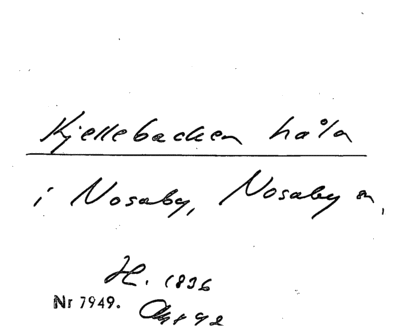 Kjellebacken håla
i Nosaby, Nosaby sn,
H. 1896
Nr 7949.